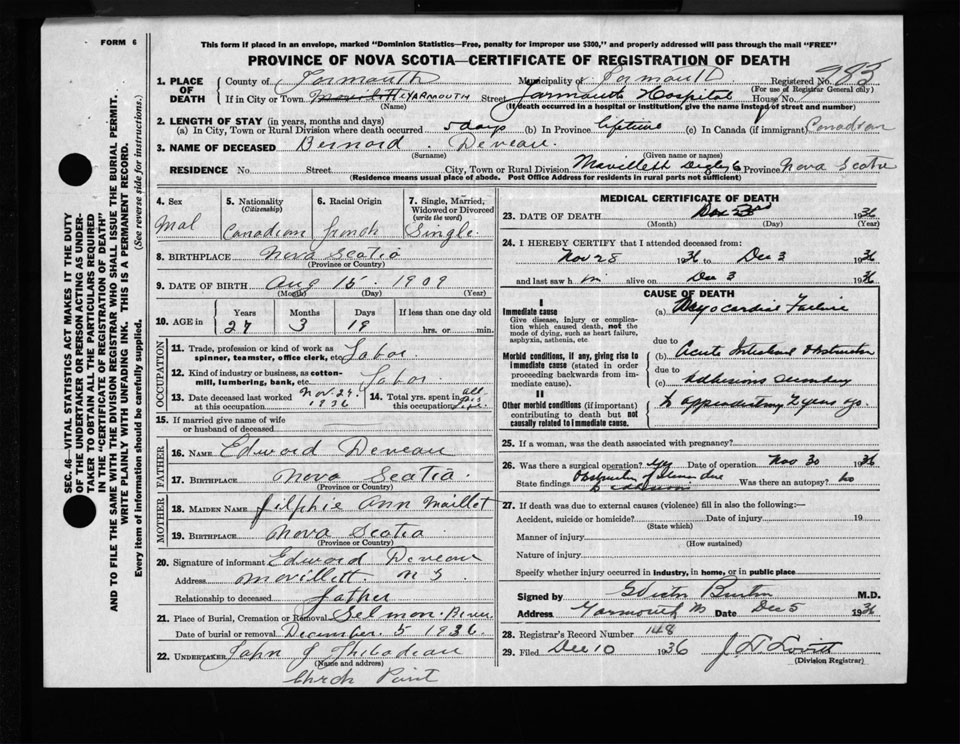 FORM 6
This form if placed in an envelope, marked "Dominion Statistics—Free, penalty for improper use $300," and properly addressed will pass through the mail "FREE"
PROVINCE OF NOVA SCOTIA—CERTIFICATE OF REGISTRATION OF DEATH
SEC. 46—VITAL STATISTICS ACT MAKES IT THE DUTY
OF THE UNDERTAKER OR PERSON ACTING AS UNDER-
TAKER TO OBTAIN ALL THE PARTICULARS REQUIRED
IN THE "CERTIFICATE OF REGISTRATION OF DEATH"
AND TO FILE THE SAME WITH THE DIVISION REGISTRAR WHO SHALL ISSUE THE BURIAL PERMIT.
WRITE PLAINLY WITH UNFADING INK. THIS IS A PERMANENT RECORD.
Every item of information should be carefully supplied. (See reverse side for instructions.)
1. PLACE OF DEATH County of Yarmouth Municipality of Yarmouth Registered No. 983
(For use of Registrar General only)
If in City or Town YARMOUTH Street Yarmouth Hospital House No.
(Name) (If death occurred in a hospital or institution, give the name instead of street and number)
2. LENGTH OF STAY (in years, months and days)
(a) In City, Town or Rural Division where death occurred 5 days (b) In Province lifetime (c) In Canada (if immigrant) Canadian
3. NAME OF DECEASED Bernard Deveau
(Surname) (Given name or names)
RESIDENCE No. Street City, Town or Rural Division Mavillett Digby Co Province Nova Scotia
(Residence means usual place of abode. Post Office Address for residents in rural parts not sufficient)
4. Sex Mal
5. Nationality (Citizenship) Canadian
6. Racial Origin French
7. Single, Married, Widowed or Divorced (write the word) Single
8. BIRTHPLACE Nova Scotia
(Province or Country)
9. DATE OF BIRTH Aug 15 1909
(Month) (Day) (Year)
10. AGE in Years 27 Months 3 Days 19 If less than one day old hrs. or min.
OCCUPATION
11. Trade, profession or kind of work as spinner, teamster, office clerk, etc. Labor
12. Kind of industry or business, as cotton-mill, lumbering, bank, etc. Labor
13. Date deceased last worked at this occupation Nov. 24 1936
14. Total yrs. spent in this occupation all his life
15. If married give name of wife or husband of deceased
FATHER
16. NAME Edward Deveau
17. BIRTHPLACE Nova Scotia
(Province or Country)
MOTHER
18. MAIDEN NAME Ann Maillet
19. BIRTHPLACE Nova Scotia
(Province or Country)
20. Signature of informant Edward Deveau
Address Mavillett N S
Relationship to deceased father
21. Place of Burial, Cremation or Removal Selmon River
Date of burial or removal December 5 1936
22. UNDERTAKER John J Thibodeau
(Name and address)
Chrch Point
MEDICAL CERTIFICATE OF DEATH
23. DATE OF DEATH Dec 3rd 1936
(Month) (Day) (Year)
24. I HEREBY CERTIFY that I attended deceased from:
Nov 28 1936 to Dec 3 1936
and last saw h im alive on Dec 3 1936
CAUSE OF DEATH
I
Immediate cause
Give disease, injury or complication which caused death, not the mode of dying, such as heart failure, asphyxia, asthenia, etc
(a) Myocardial Failure
due to
Morbid conditions, if any, giving rise to immediate cause (stated in order proceeding backwards from immediate cause).
(b) Acute Intestinal Obstruction
due to
(c) Adhesions secondary
II
Other morbid conditions (if important) contributing to death but not causally related to immediate cause.
to appendectomy 7 years ago.
25. If a woman, was the death associated with pregnancy?
26. Was there a surgical operation? yes Date of operation Nov 30 1936
State findings Obstruction of ileum due to adhesions Was there an autopsy? no
27. If death was due to external causes (violence) fill in also the following:—
Accident, suicide or homicide? Date of injury 19
(State which)
Manner of injury
(How sustained)
Nature of injury
Specify whether injury occurred in industry, in home, or in public place
Signed by G Victor Burton M.D.
Address Yarmouth NS Date Dec 5 1936
28. Registrar's Record Number 148
29. Filed Dec 10 1936 J. D. Lovitt
(Division Registrar)